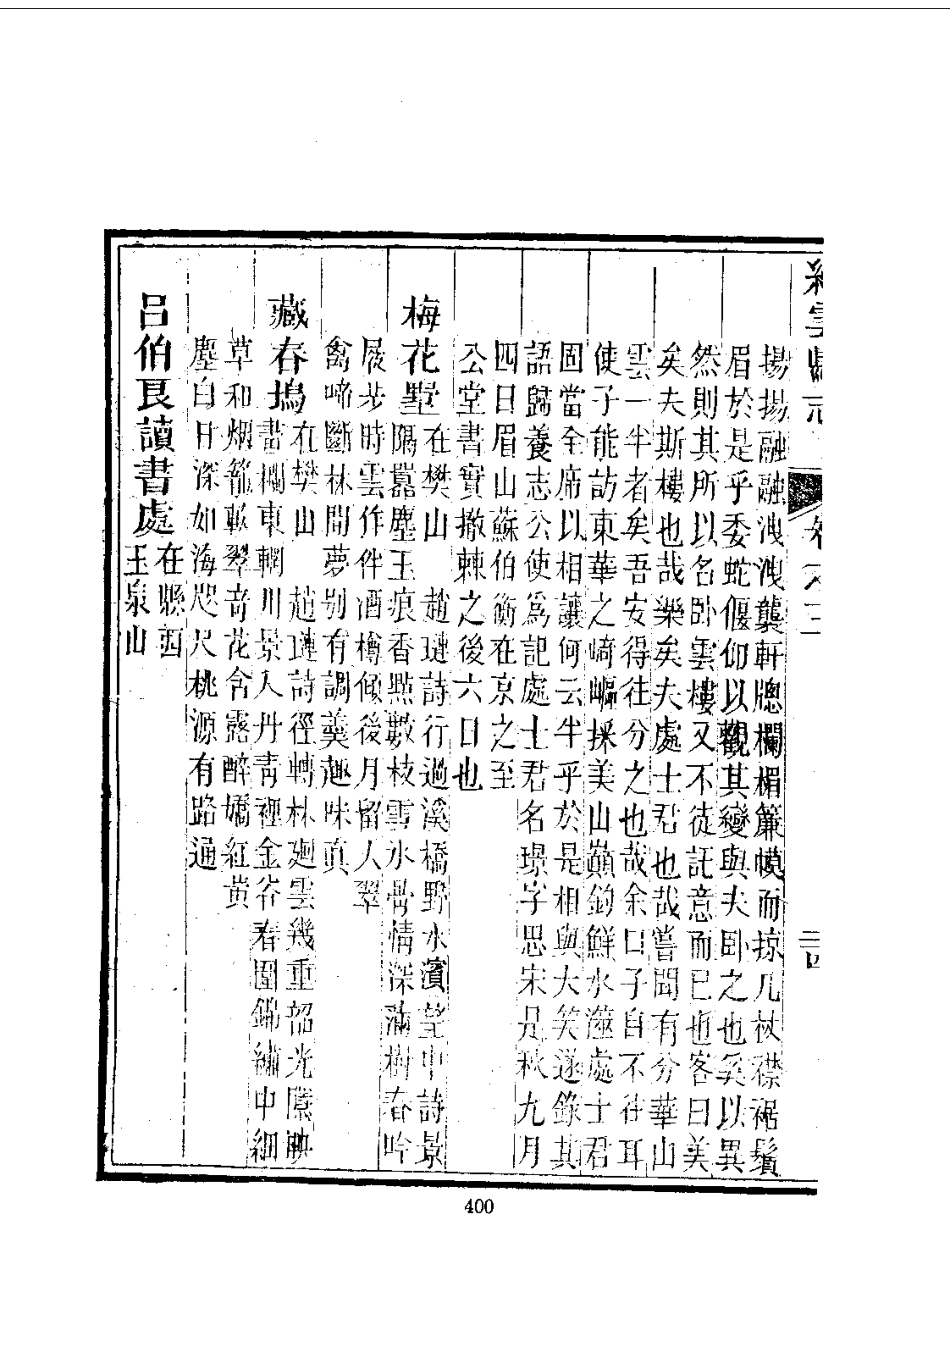 縉雲縣志
卷之三
二四
揚揚融融洩洩襲軒牕欄楣簾幙而掠几杖襟裾鬚
眉於是乎委蛇偃仰以觀其變與夫臥之也奚以異
然則其所以名臥雲樓又不徒託意而已也客曰美
矣夫斯樓也哉樂矣夫處士君也哉嘗聞有分華山
雲一半者矣吾安得往分之也哉余曰子自不往耳
使子能訪東華之﨑嶇採美山巔釣鮮水澨處士君
固當全席以相讓何云半乎於是相與大笑遂錄其
語歸養志公使爲記處士君名璟字思宋是秋九月
四日眉山蘇伯衡在京之至
公堂書實撤棘之後六日也
梅花墅在樊山 趙璉詩行過溪橋野水濱望中詩景
隔囂塵玉痕香點數枝雪水骨情深滿樹春吟
屐步時雲作伴酒樽傾後月留人翠
禽啼斷林間夢别有調羹趣味眞
藏春塢在樊山 趙璉詩徑轉林廻雲幾重韶光隱映
畫欄東輞川景入丹青裡金谷春圍錦繡中細
草和烟籠軟翠竒花含露醉嬌紅黃
塵白日深如海咫尺桃源有路通
呂伯艮讀書處在縣西
玉泉山
400